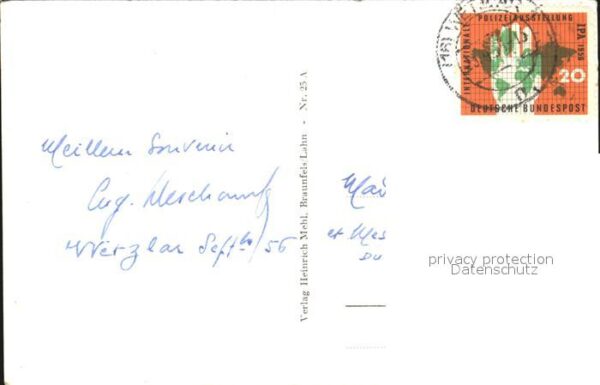 INTERNATIONALE
POLIZEIAUSSTELLUNG
IPA 1956
20
DEUTSCHE BUNDESPOST
Meilleur Souvenir
Eug. Deschamps
Wetzlar Septbre/56
Verlag Heinrich Mehl, Braunfels/Lahn - Nr. 25 A
et Mes
privacy protection
Datenschutz